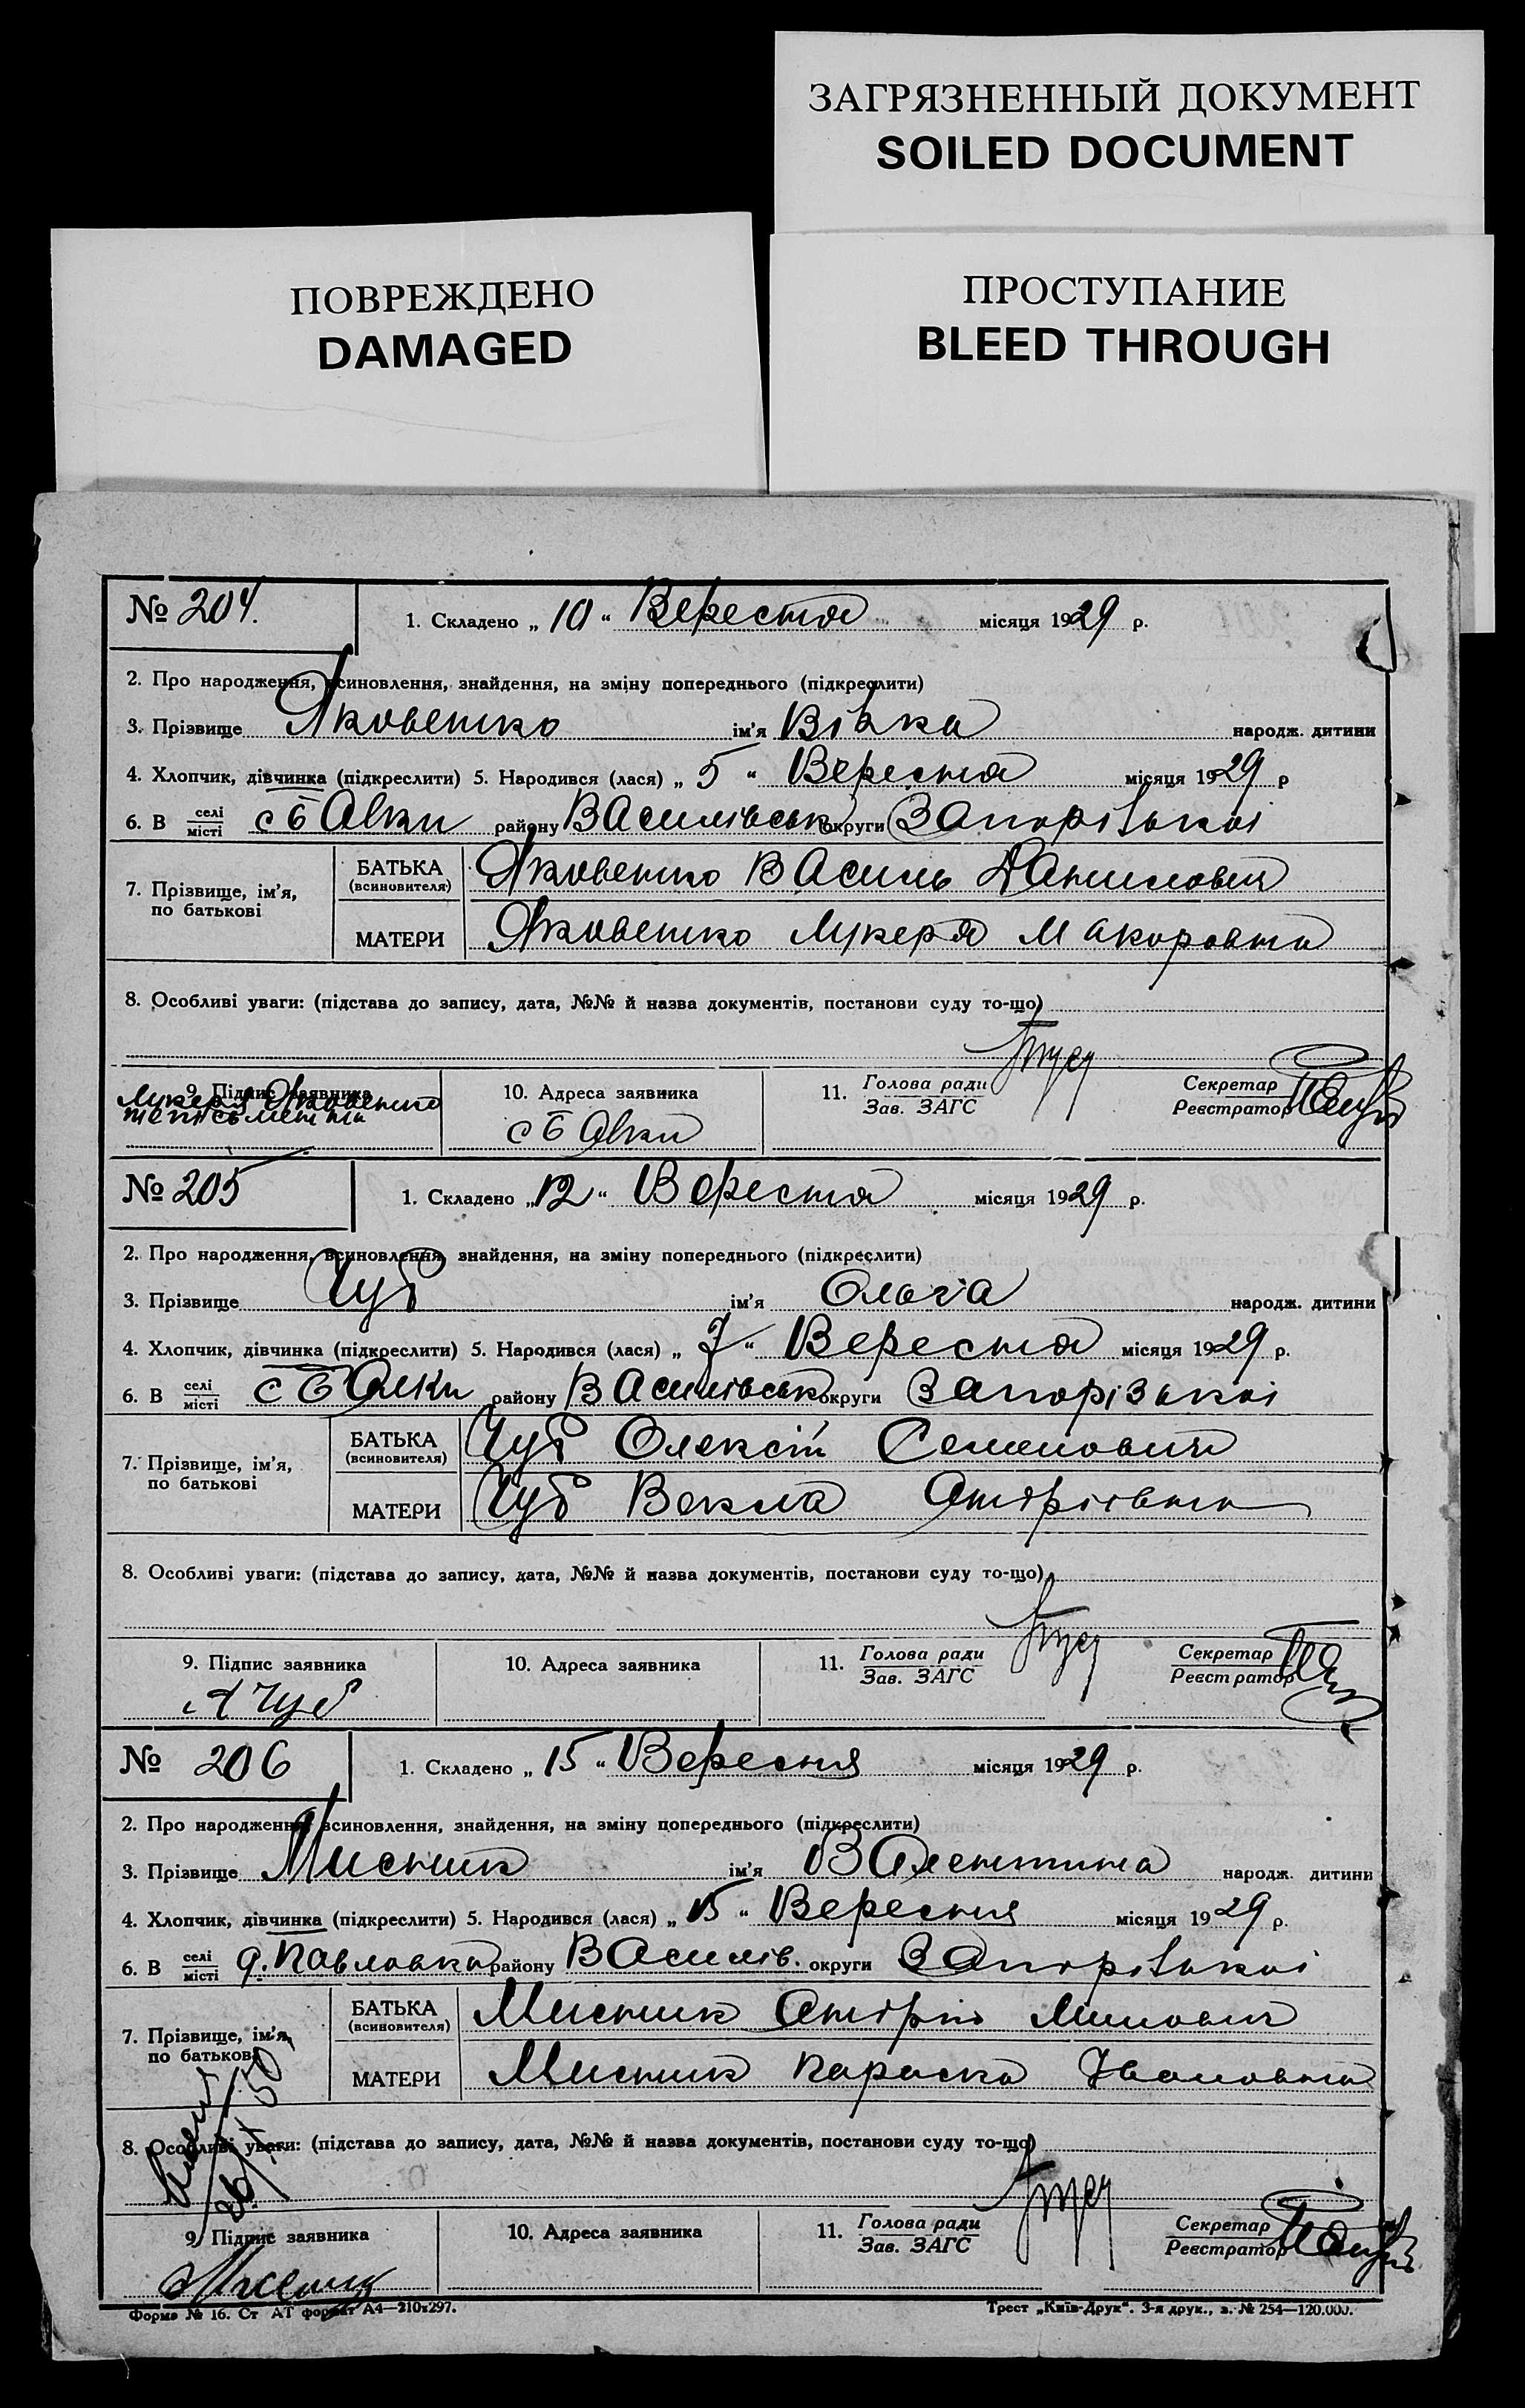 ЗАГРЯЗНЕННЫЙ ДОКУМЕНТ
SOILED DOCUMENT
ПОВРЕЖДЕНО
DAMAGED
ПРОСТУПАНИЕ
BLEED THROUGH
№ 204.
1. Складено „ 10 “ Вересня місяця 1929 р.
2. Про народження, всиновлення, знайдення, на зміну попереднього (підкреслити)
3. Прізвище Яковенко ім'я Вівка народж. дитини
4. Хлопчик, дівчинка (підкреслити) 5. Народився (лася) „ 5 “ Вересня місяця 1929 р
6. В селі/місті с Б району Василівськ округи Запорізькоі
7. Прізвище, ім'я, по батькові
БАТЬКА (всиновителя) Яковенко Василь Данилович
МАТЕРИ Яковенко Лукеря Макоровна
8. Особливі уваги: (підстава до запису, дата, №№ й назва документів, постанови суду то-що)
9. Підпис заявника 10. Адреса заявника 11. Голова ради Зав. ЗАГС Секретар Реєстратор
Лукеря Яковенко
с Б
№ 205
1. Складено „ 12 “ Вересня місяця 1929 р.
2. Про народження, всиновлення, знайдення, на зміну попереднього (підкреслити)
3. Прізвище Чуб ім'я Ольга народж. дитини
4. Хлопчик, дівчинка (підкреслити) 5. Народився (лася) „ 7 “ Вересня місяця 1929 р.
6. В селі/місті с Б району Василівськ округи Запорізькоі
7. Прізвище, ім'я, по батькові
БАТЬКА (всиновителя) Чуб Олексій Семенович
МАТЕРИ Чуб Векла Андріівна
8. Особливі уваги: (підстава до запису, дата, №№ й назва документів, постанови суду то-що)
9. Підпис заявника 10. Адреса заявника 11. Голова ради Зав. ЗАГС Секретар Реєстратор
А Чуб
№ 206
1. Складено „ 15 “ Вересня місяця 1929 р.
2. Про народження, всиновлення, знайдення, на зміну попереднього (підкреслити)
3. Прізвище Мисник ім'я Валентина народж. дитини
4. Хлопчик, дівчинка (підкреслити) 5. Народився (лася) „ 15 “ Вересня місяця 1929 р.
6. В селі/місті д. Павловка району Василів. округи Запорізькоі
7. Прізвище, ім'я, по батькові
БАТЬКА (всиновителя) Мисник Андрій Минович
МАТЕРИ Мисник Параска Івановна
8. Особливі уваги: (підстава до запису, дата, №№ й назва документів, постанови суду то-що)
9. Підпис заявника 10. Адреса заявника 11. Голова ради Зав. ЗАГС Секретар Реєстратор
Форма № 16. Ст АТ формат А4—210х297. Трест „Київ-Друк“. 3-я друк., з. № 254—120.000.